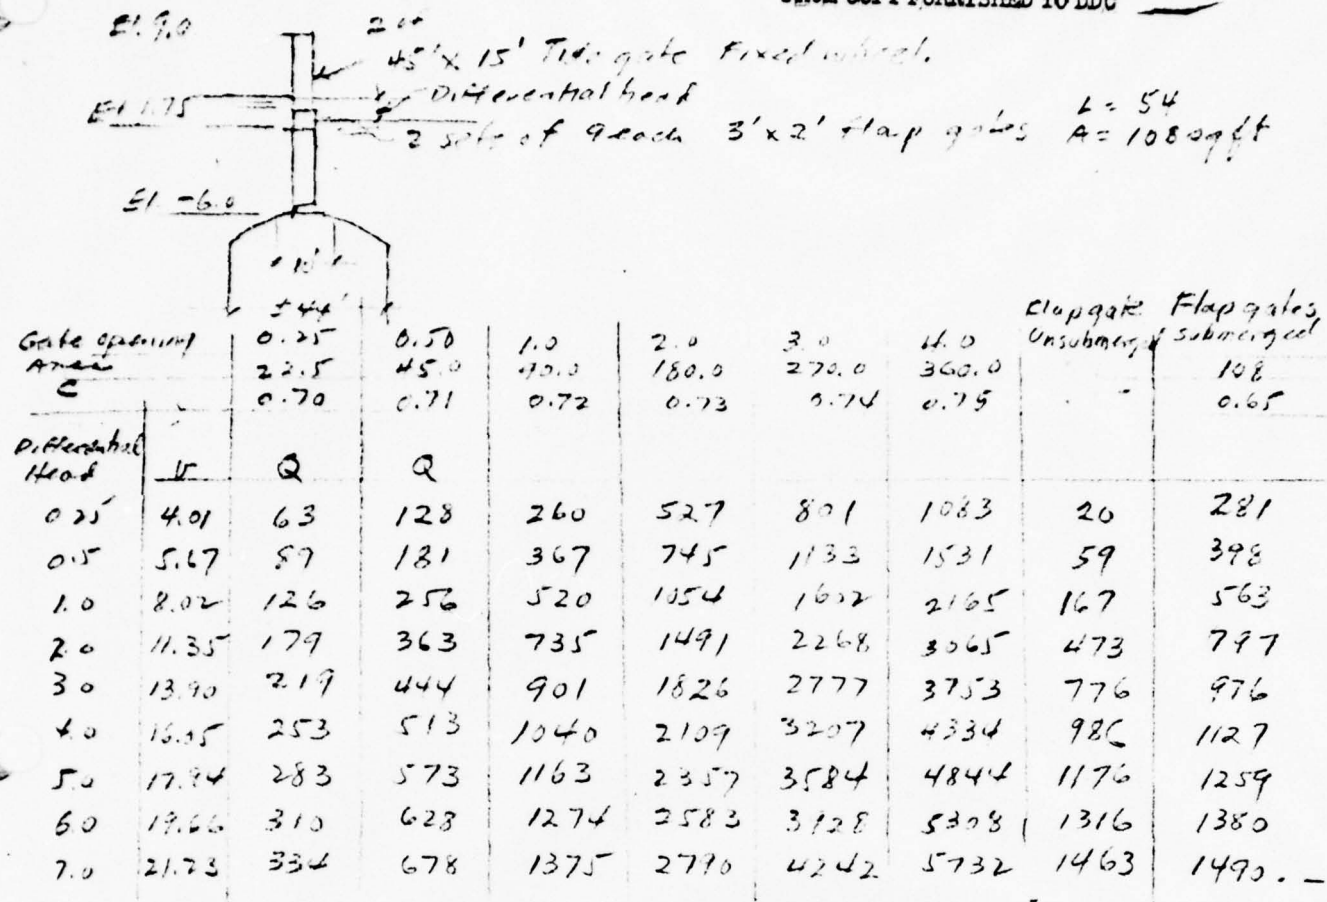 COPY FURNISHED TO DDC
El. 9.0
2 of
45' x 15' Tidegate Fixed wheel.
Differential head
El 1.75
L = 54
2 sets of 9 each 3' x 2' flap gates A = 108 sq ft
El. -6.0
10'
± 44'
Flapgate Flapgates,
Gate opening 0.25 0.50 1.0 2.0 3.0 4.0 Unsubmerged submerged
Area 22.5 45.0 90.0 180.0 270.0 360.0 108
C 0.70 0.71 0.72 0.73 0.74 0.75 - 0.65
Differential
Head v Q Q
0.25 4.01 63 128 260 527 801 1083 20 281
0.5 5.67 89 181 367 745 1133 1531 59 398
1.0 8.02 126 256 520 1054 1602 2165 167 563
2.0 11.35 179 363 735 1491 2268 3065 473 797
3.0 13.90 219 444 901 1826 2777 3753 776 976
4.0 16.05 253 513 1040 2109 3207 4334 986 1127
5.0 17.94 283 573 1163 2357 3584 4844 1176 1259
6.0 19.66 310 628 1274 2583 3928 5308 1316 1380
7.0 21.23 334 678 1375 2790 4242 5732 1463 1490.